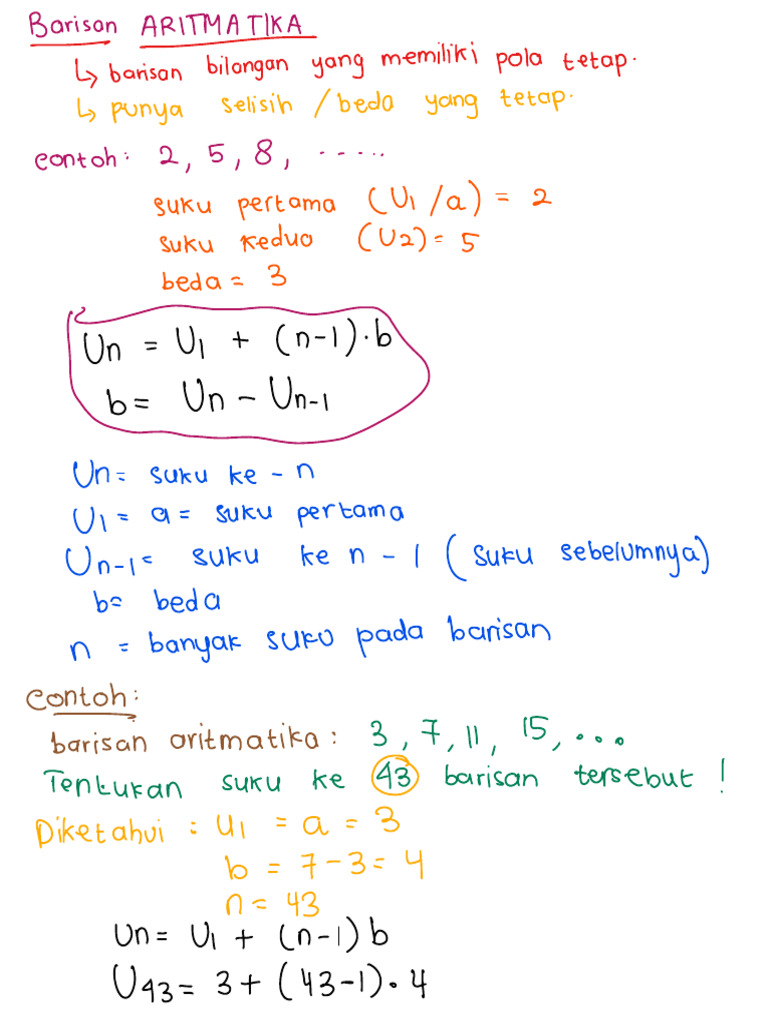 Barisan ARITMATIKA
↳ barisan bilangan yang memiliki pola tetap.
↳ punya selisih / beda yang tetap.
contoh: 2, 5, 8, .....
suku pertama (U₁ /a) = 2
suku kedua (U2) = 5
beda = 3
Un = U₁ + (n-1).b
b = Un - Uₙ₋₁
Un = suku ke - n
U₁ = a = suku pertama
Uₙ₋₁ = suku ke n - 1 (suku sebelumnya)
b = beda
n = banyak suku pada barisan
Contoh:
barisan aritmatika: 3, 7, 11, 15, ...
Tentukan suku ke 43 barisan tersebut !
Diketahui : U₁ = a = 3
b = 7-3 = 4
n = 43
Un = U₁ + (n-1) b
U₄₃ = 3 + (43-1) . 4